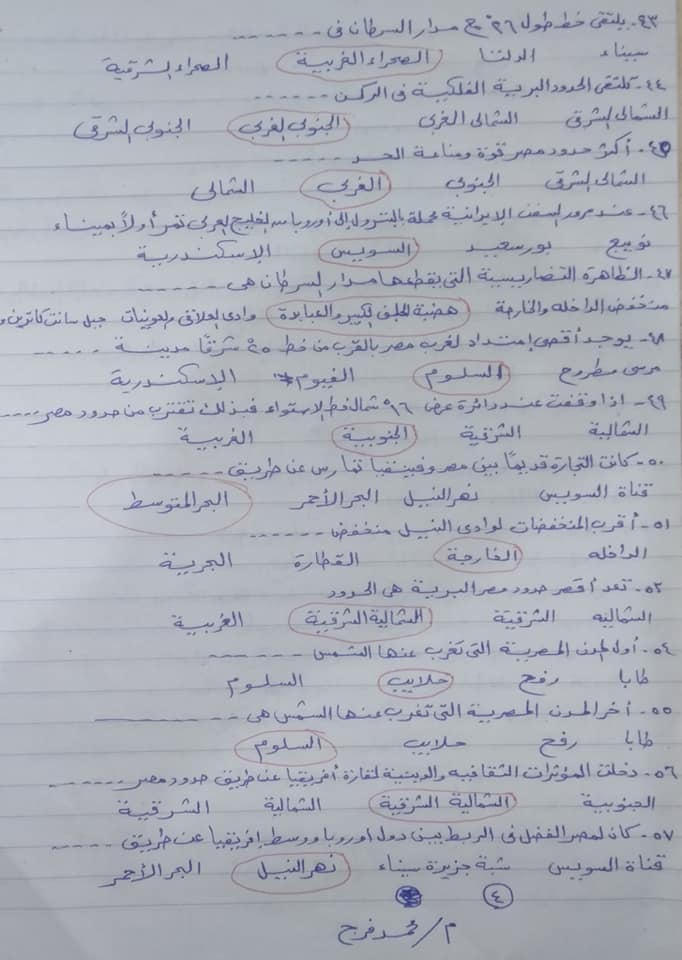 ٤٣- يلتقى خط طول ٢٦° مع مدار السرطان فى ------
سيناء الدلتا الصحراء الغربية الصحراء الشرقية
٤٤- تلتقى الحدود البرية الفلكية فى الركن ------
الشمالى الشرقى الشمالى الغربى الجنوبى الغربى الجنوبى الشرقى
٤٥- أكثر حدود مصر قوة ومناعة الحد -----
الشمالى الشرقى الجنوبى الغربى الشمالى
٤٦- عند مرور السفن الايرانية محملة بالبترول إلى أوروبا من الخليج العربى تمر أولاً بميناء
نويبع بورسعيد السويس الاسكندرية
٤٧- الظاهرة التضاريسية التى يقطعها مدار السرطان هى ------
منخفض الداخله والخارجة هضبة الجلف الكبير والعبابدة وادى العلاقى والعوينات جبل سانت كاترين و
٤٨- يوجد أقصى إمتداد لغرب مصر بالقرب من خط ٢٥ شرقًا مدينة -----
مرسى مطروح السلوم الفيوم الإسكندرية
٤٩- اذا وقفت عند دائرة عرض ١٦° شمال خط الاستواء فبذلك تقترب من حدود مصر ----
الشمالية الشرقية الجنوبية الغربية
٥٠- كانت التجارة قديمًا بين مصر وفينيقيا تمارس عن طريق -----
قناة السويس نهر النيل البحر الأحمر البحر المتوسط
٥١- أقرب المنخفضات لوادى النيل منخفض ------
الداخله الخارجة القطارة البحرية
٥٢- تعد أقصر حدود مصر البرية هى الحدود
الشماليه الشرقية الشمالية الشرقية الغربية
٥٤- أول المدن المصرية التى تغرب عنها الشمس ------
طابا رفح حلايب السلوم
٥٥- أخر المدن المصرية التى تغرب عنها الشمس هى ------
طابا رفح حلايب السلوم
٥٦- دخلت المؤثرات الثقافيه والدينية لقارة أفريقيا عن طريق حدود مصر -----
الجنوبية الشمالية الشرقية الشمالية الشرقية
٥٧- كان لمصر الفضل فى الربط بين دول اوروبا ووسط إفريقيا عن طريق -----
قناة السويس شبة جزيرة سيناء نهر النيل البحر الأحمر
٤
م/ محمد فرج